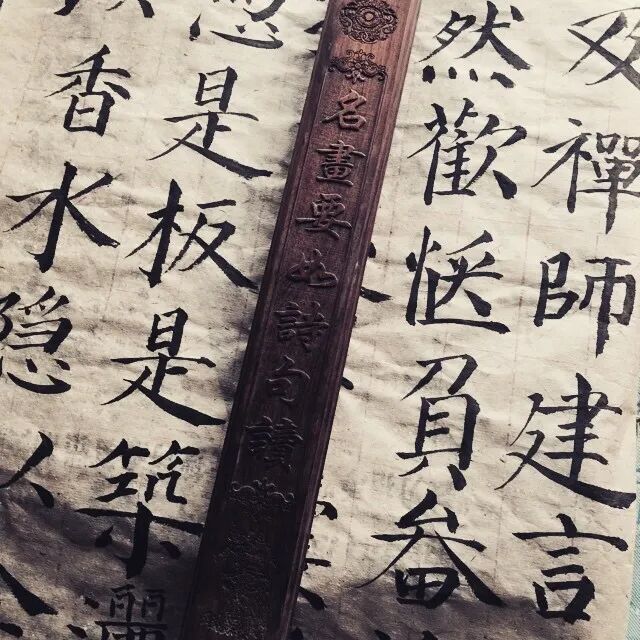 及禪師建言
然歡愜負畚
名畫要如詩句讀
是板是築灑
香水隐以